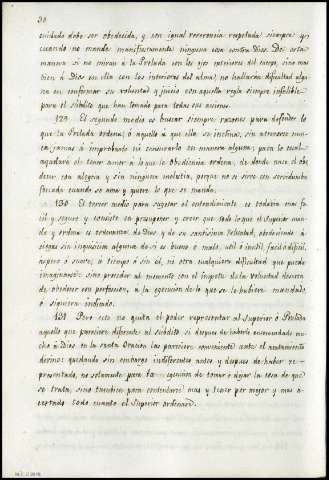 38
cuidado debe ser obedecida, y con igual reverencia respetada siempre y
cuando no manda manifiestamente ninguna cosa contra Dios. De esta
manera si no miran á la Prelada con los ojos exteriores del cuerpo, sino mas
bien á Dios en ella con los interiores del alma; no hallarán dificultad algu
na en conformar su voluntad y juicio con aquella regla siempre infalible
para el súbdito que han tomado para todas sus acciones.
129 El segundo medio es buscar siempre razones para defender lo
que la Prelada ordena; ó aquello á que ella se inclina; sin atreverse nun
ca jamas á improbarlo ni censurarlo en manera alguna; para lo cual
ayudará el tener amor á lo que la obediencia ordena, de donde nace el obe
decer con alegria y sin ninguna molestia, porque no se sirve con servidumbre
forzada cuando se ama y quiere lo que se manda.
130 El tercer medio para sujetar el entendimiento es todavia mas fa
cil y seguro y consiste en presuponer y creer que todo lo que el Superior man
da y ordena es ordenanza de Dios y de su santisima Voluntad, obedeciendo á
ciegas sin inquisicion alguna de si es bueno ó malo, util ó inutil, facil ó dificil,
aspero ó suave, á tiempo ó sin él, ni otra cualquiera dificultad que puede
imaginarse: sino proceder al momento con el impetu de la Voluntad deseosa
de obedecer con perfeccion, a la ejecucion de lo que se le hubiere mandado,
ó siquiera indicado.
131 Pero esto no quita el poder representar al Superior ó Prelada
aquello que pareciere diferente al súbdito si despues de haberlo encomendado mu
cho á Dios en la santa Oracion les pareciere conveniente ante el acatamiento
divino: quedando sin embargo indiferentes antes y despues de haber re-
presentado, no solamente para la egecucion de tomar ó dejar la cosa de que
se trata; sino tambien para contentarse mas y tener por mejor y mas a
certado todo cuanto el Superior ordenare.